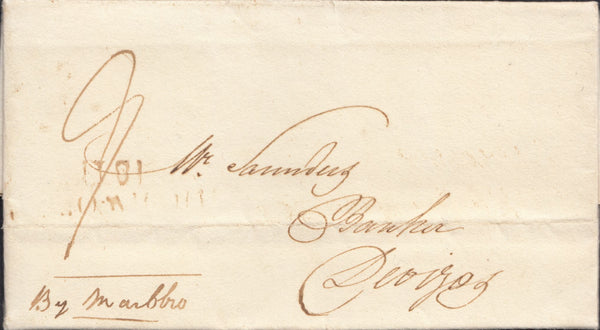 Mr. Saunders
Banker
Devizes
By Marlbro